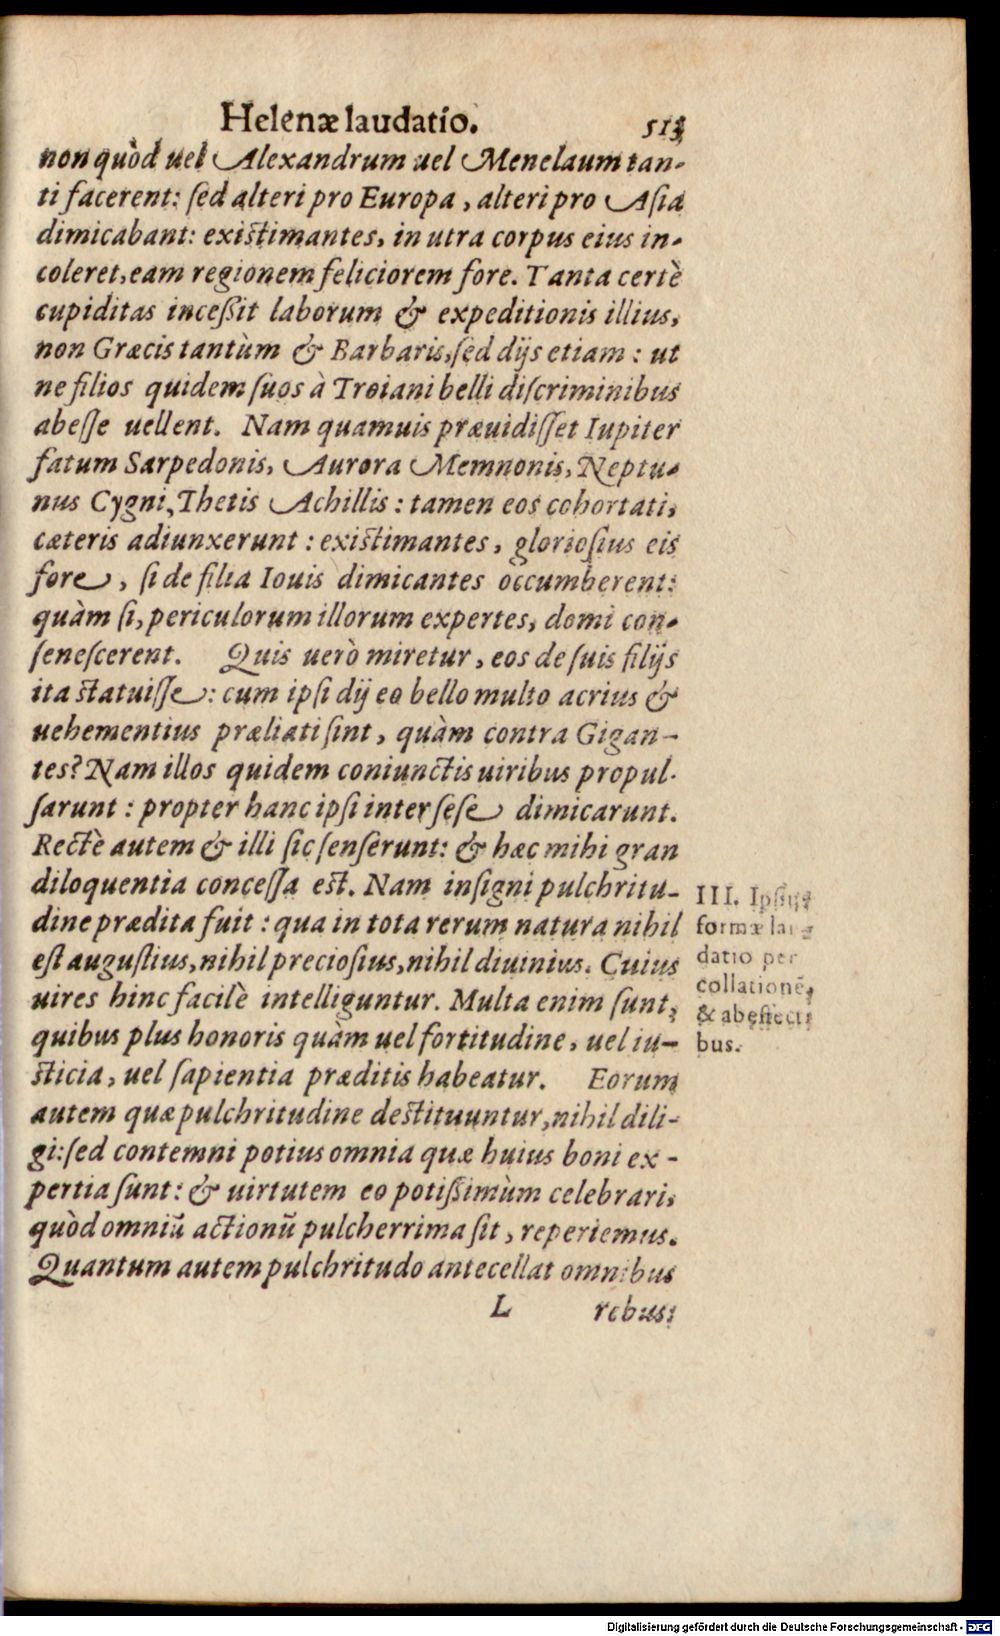 Helenæ laudatio. 513
non quòd uel Alexandrum uel Menelaum tan-
ti facerent: sed alteri pro Europa, alteri pro Asia
dimicabant: existimantes, in utra corpus eius in-
coleret, eam regionem feliciorem fore. Tanta certè
cupiditas inceßit laborum & expeditionis illius,
non Græcis tantùm & Barbaris, sed dijs etiam: ut
ne filios quidem suos à Troiani belli discriminibus
abesse uellent. Nam quamuis præuidisset Iupiter
fatum Sarpedonis, Aurora Memnonis, Neptu-
nus Cygni, Thetis Achillis: tamen eos cohortati,
cæteris adiunxerunt: existimantes, gloriosius eis
fore, si de filia Iouis dimicantes occumberent:
quàm si, periculorum illorum expertes, domi con-
senescerent. Quis uerò miretur, eos de suis filijs
ita statuisse: cum ipsi dij eo bello multo acrius &
uehementius præliati sint, quàm contra Gigan-
tes? Nam illos quidem coniunctis uiribus propul-
sarunt: propter hanc ipsi inter sese dimicarunt.
Rectè autem & illi sic senserunt: & hæc mihi gran
diloquentia concessa est. Nam insigni pulchritu-
dine prædita fuit: qua in tota rerum natura nihil
est augustius, nihil preciosius, nihil diuinius. Cuius
uires hinc facilè intelliguntur. Multa enim sunt,
quibus plus honoris quàm uel fortitudine, uel iu-
sticia, uel sapientia præditis habeatur. Eorum
autem quæ pulchritudine destituuntur, nihil dili-
gi: sed contemni potius omnia quæ huius boni ex-
pertia sunt: & uirtutem eo potißimùm celebrari,
quòd omniū actionū pulcherrima sit, reperiemus.
Quantum autem pulchritudo antecellat omnibus
L rebus:
III. Ipsius
formæ lau-
datio per
collationē,
& ab effecti
bus.
Digitalisierung gefördert durch die Deutsche Forschungsgemeinschaft - DFG